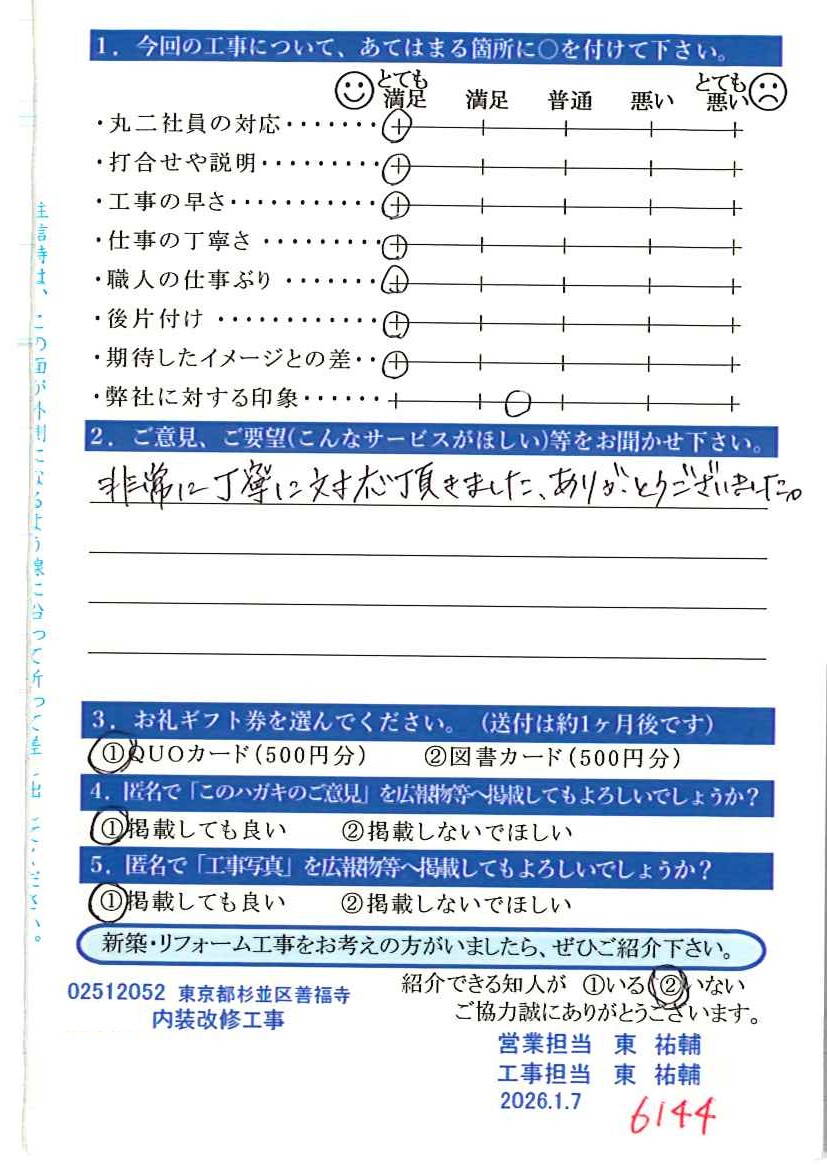 1．今回の工事について、あてはまる箇所に○を付けて下さい。
とても満足 満足 普通 悪い とても悪い
・丸二社員の対応・・・・・・・
・打合せや説明・・・・・・・・・
・工事の早さ・・・・・・・・・・・
・仕事の丁寧さ ・・・・・・・・・
・職人の仕事ぶり ・・・・・・・
・後片付け ・・・・・・・・・・・・
・期待したイメージとの差・・
・弊社に対する印象・・・・・・
2．ご意見、ご要望(こんなサービスがほしい)等をお聞かせ下さい。
非常に丁寧に対応頂きました、ありがとうございました。
3．お礼ギフト券を選んでください。（送付は約1ヶ月後です）
①QUOカード（500円分） ②図書カード（500円分）
4．匿名で「このハガキのご意見」を広報物等へ掲載してもよろしいでしょうか？
①掲載しても良い ②掲載しないでほしい
5．匿名で「工事写真」を広報物等へ掲載してもよろしいでしょうか？
①掲載しても良い ②掲載しないでほしい
新築・リフォーム工事をお考えの方がいましたら、ぜひご紹介下さい。
紹介できる知人が ①いる ②いない
ご協力誠にありがとうございます。
02512052 東京都杉並区善福寺
内装改修工事
営業担当 東 祐輔
工事担当 東 祐輔
2026.1.7
6144